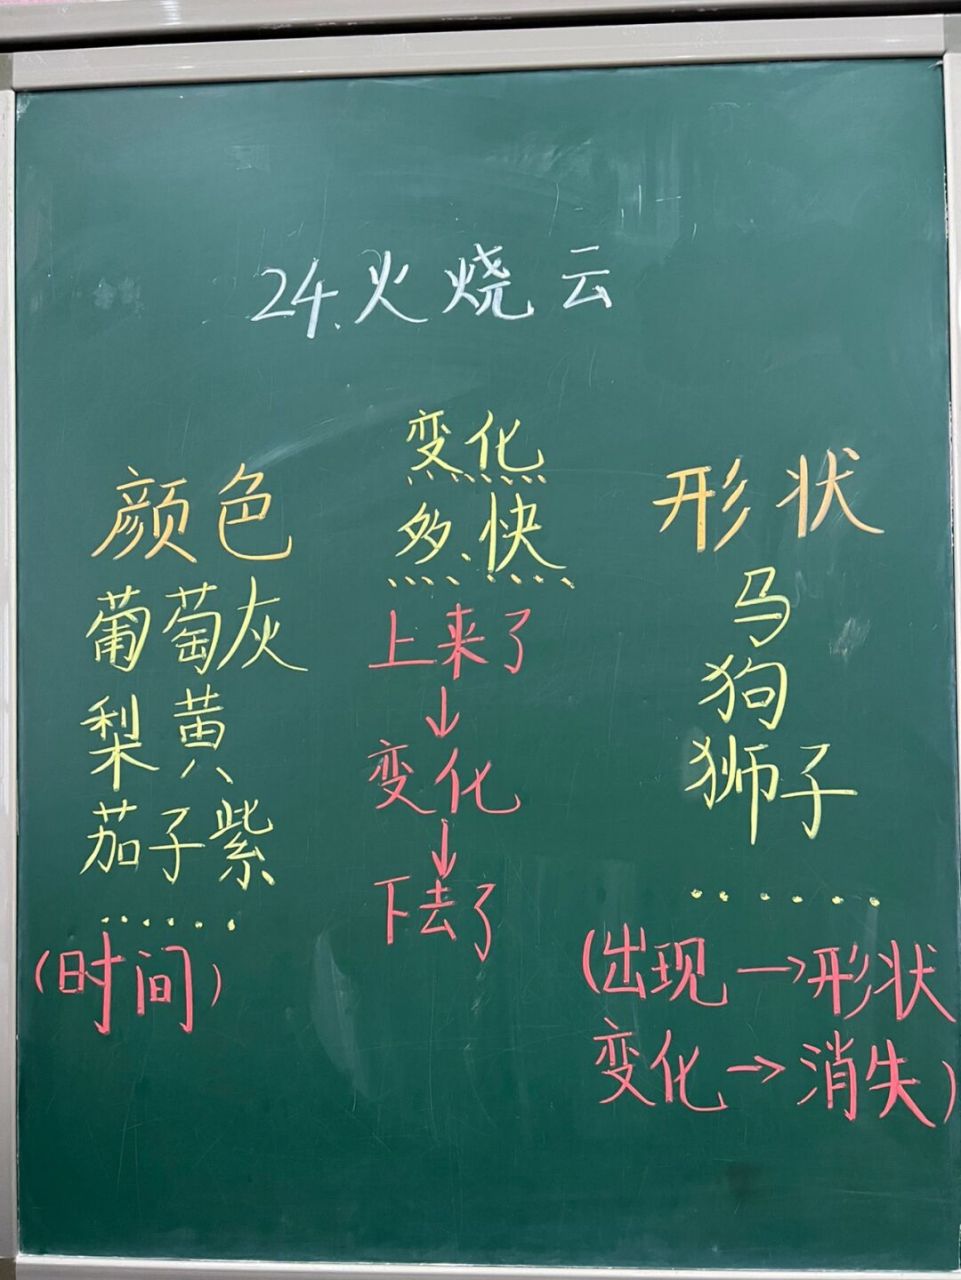 24.火烧云
变化
多、快
颜色
葡萄灰
梨黄
茄子紫
······
(时间)
上来了
↓
变化
↓
下去了
形状
马
狗
狮子
······
(出现→形状
变化→消失)